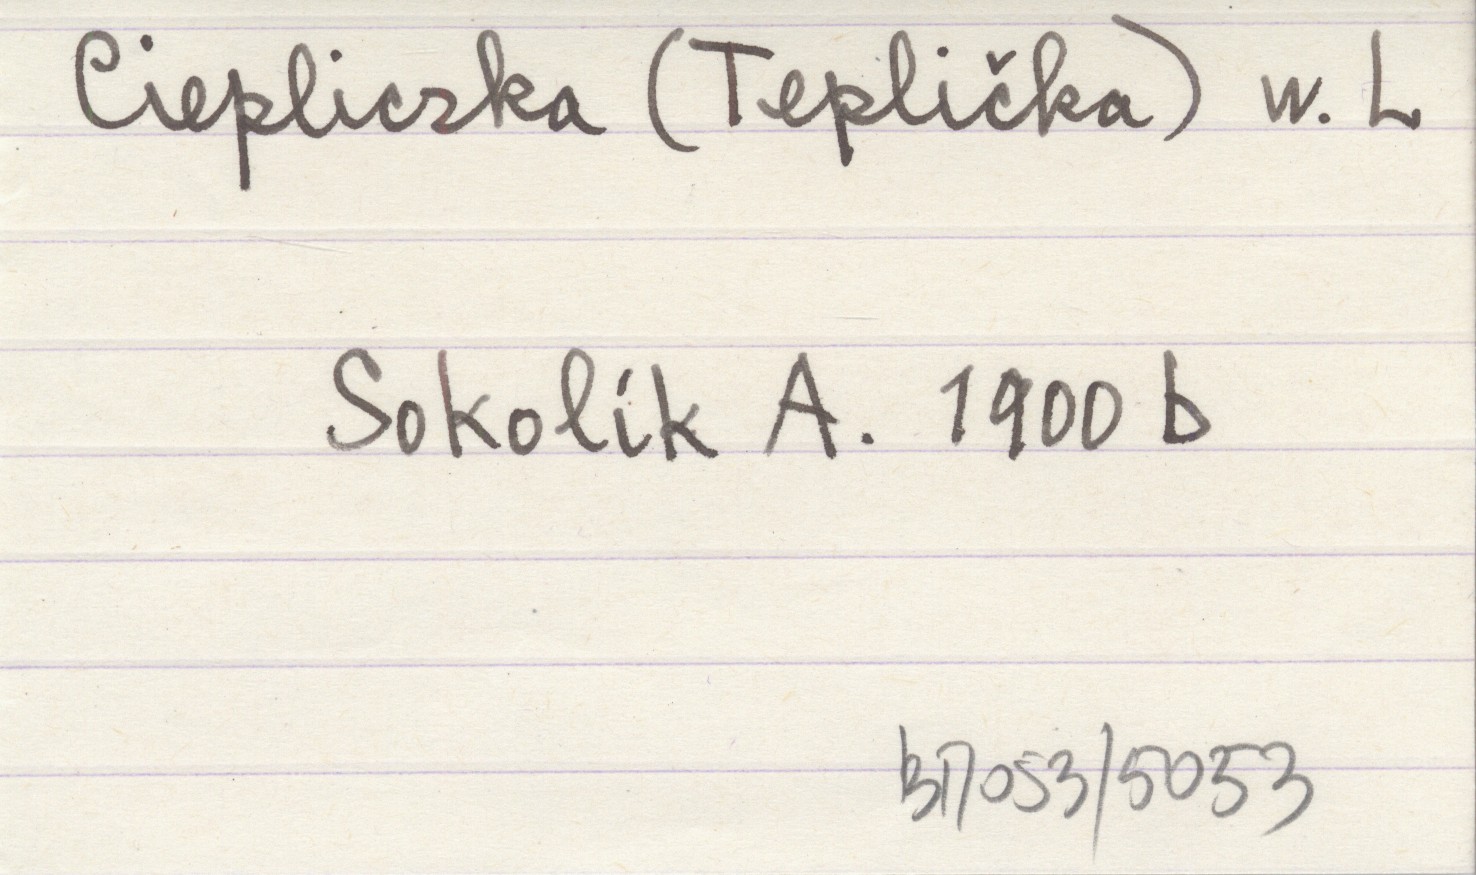 Ciepliczka (Teplička) w. L
Sokolík A. 1900 b
/5053